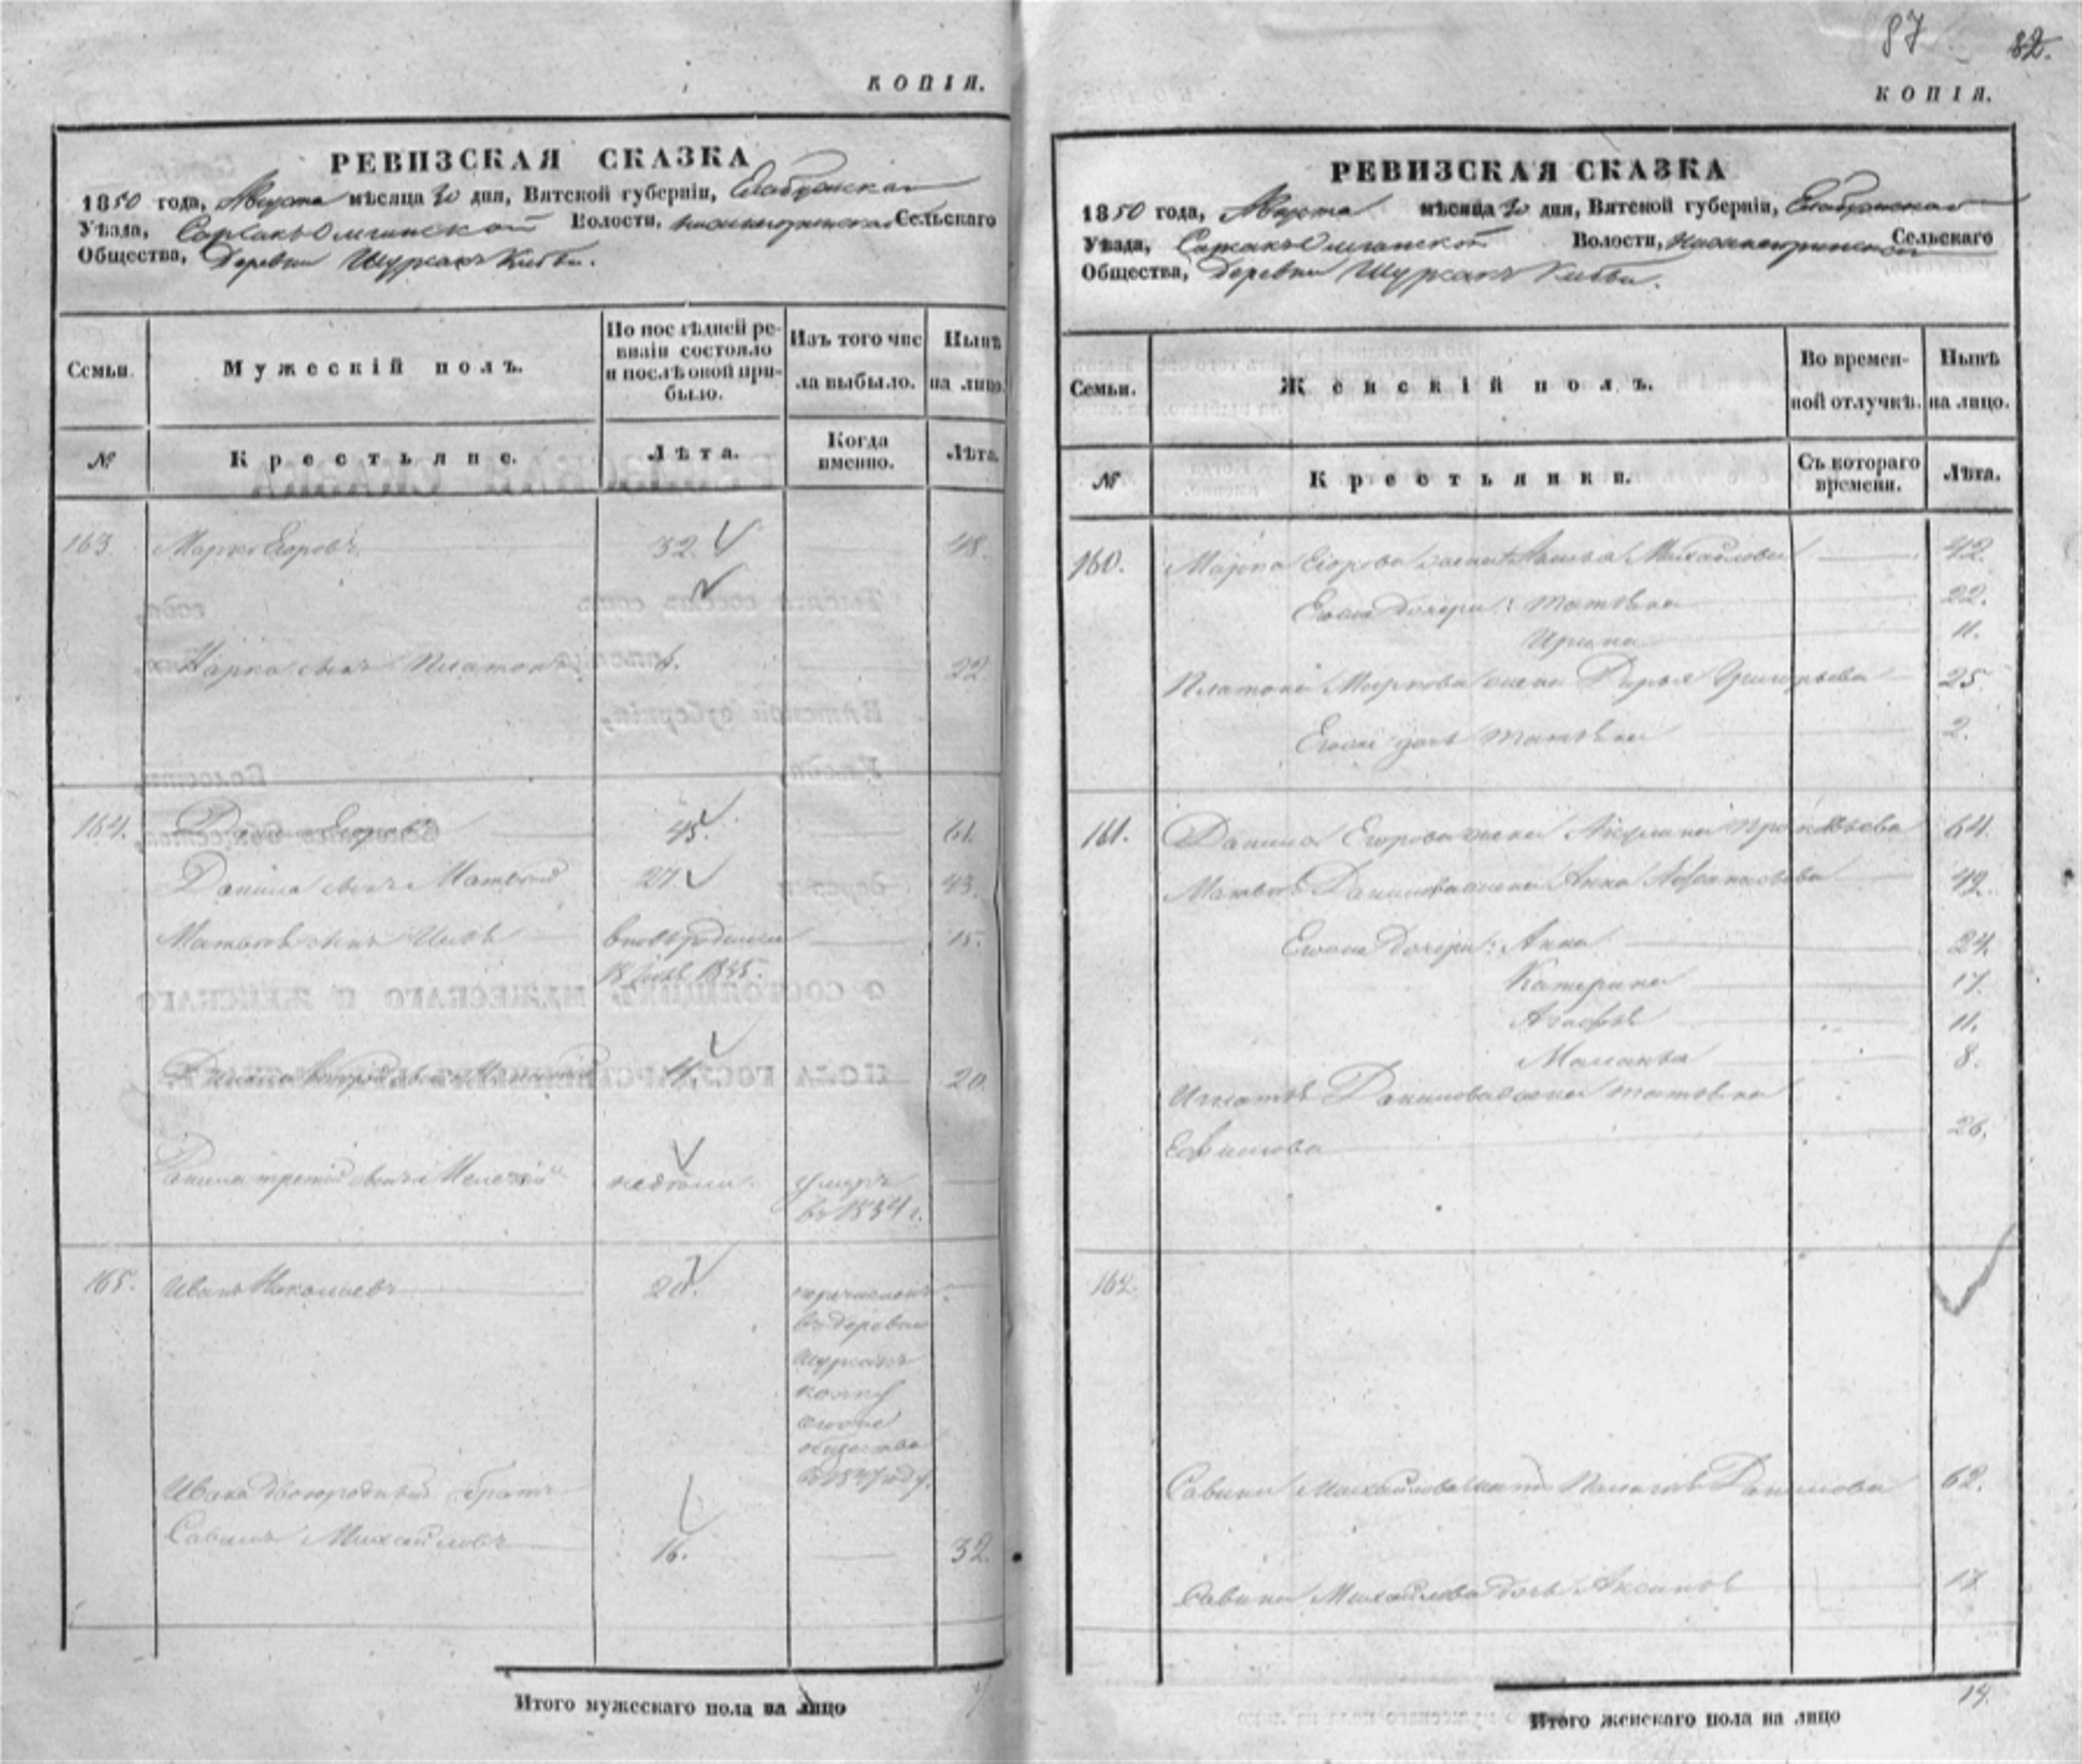 КОПІЯ.
РЕВИЗСКАЯ СКАЗКА
1850 года, Августа мѣсяца 30 дня, Вятской губерніи, Елабужскаго
Уѣзда, Волости, Сельскаго
Общества, Деревни
Семьи.
Мужескій полъ.
По послѣдней ре-
визіи состояло
и послѣ оной при-
было.
Изъ того чис
ла выбыло.
Нынѣ
на лицо.
№
Крестьяне.
Лѣта.
Когда
именно.
Лѣта.
163. Марко Егоровъ 32. 48.
Марка сынъ Платонъ 6. 22
164. Данило Егоровъ 45. 61.
Данила сынъ Матвей 27. 43.
Матвея сынъ Иовъ вновьрожденъ 15.
1835.
Данила второй сынъ 4. 20.
Данила третий сынъ недели. умеръ
въ 1834 г.
165. Иванъ Николаевъ 20. перечисленъ
въ деревню
общества
въ 1847 году.
Ивана двоюродный братъ
Савинъ Михайловъ 16. 32.
Итого мужескаго пола на лицо
87 82.
КОПІЯ.
РЕВИЗСКАЯ СКАЗКА
1850 года, Августа мѣсяца 30 дня, Вятской губерніи, Елабужскаго
Уѣзда, Волости, Сельскаго
Общества, Деревни
Семьи.
Женскій полъ.
Во времен-
ной отлучкѣ.
Нынѣ
на лицо.
№
Крестьянки.
Съ котораго
времени.
Лѣта.
160. Марка Егорова жена Михайлова 42.
Его же дочери: Татьяна 22.
Ирина 11.
Платона Маркова жена Дарья Григорьева 25
Его же дочь Татьяна 2.
161. Данила Егорова жена Акулина Прокопьева 64.
Матвея Данилова жена Анна 49.
Его же дочери: Анна 24.
Катерина 17.
Агафья 11.
Маланья 8.
Игнатья Данилова жена Татьяна
Ефимова 26.
162.
Савина Михайлова мать Данилова 62.
Савина Михайлова дочь Аксинья 17
Итого женскаго пола на лицо 14.